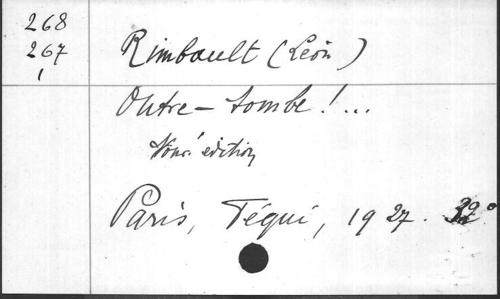 268
267
1
Rimbault (Léon)
Outre-tombe!...
Nouv. édition
Paris, Téqui, 1927.